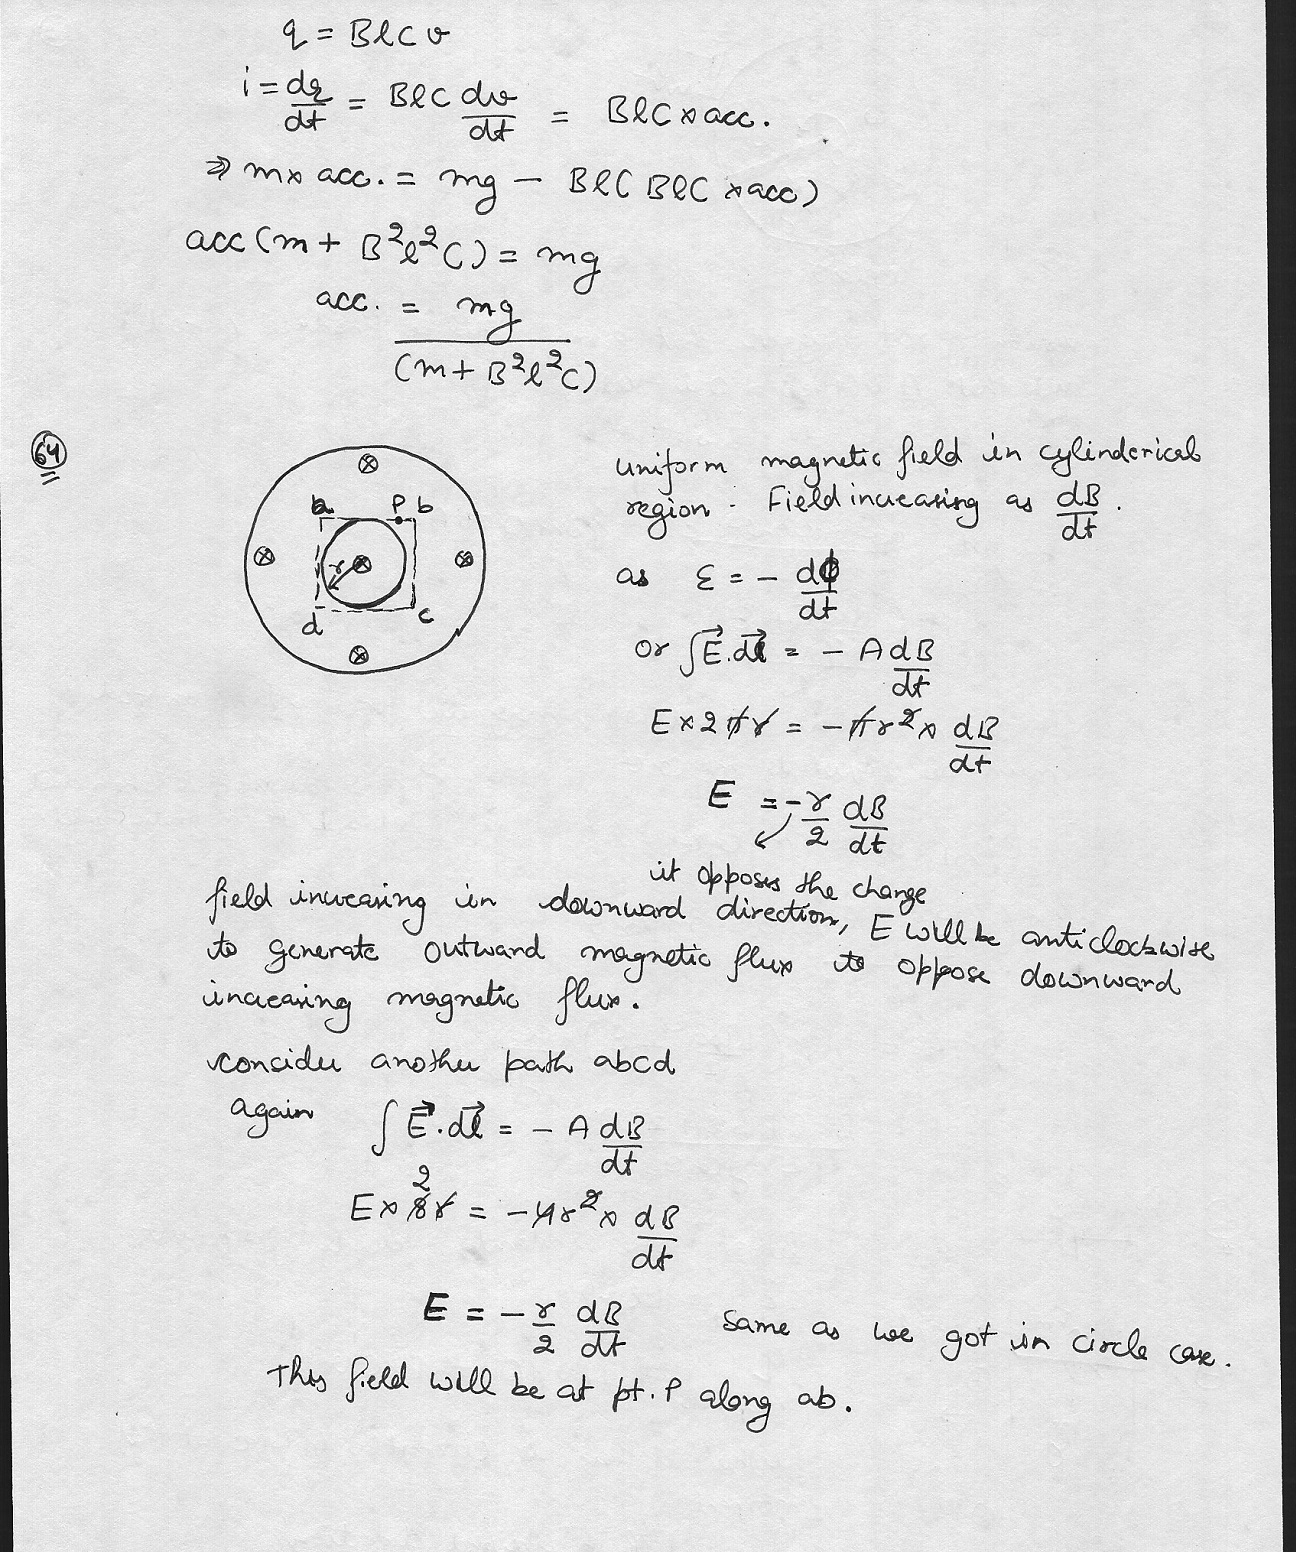 q = BlCv
i = dq/dt = BlC dv/dt = BlC × acc.
⇒ m× acc. = mg − BlC BlC × acc)
acc (m + B²l²C) = mg
acc. = mg / (m + B²l²C)
64
a P b
r
d c
uniform magnetic field in cylinderical
region. Field increasing as dB/dt.
as ε = − dϕ/dt
or ∫E⃗.dl⃗ = − A dB/dt
E × 2πr = −πr² × dB/dt
E = −r/2 dB/dt
it opposes the change
field increasing in downward direction, E will be anticlockwise
to generate outward magnetic flux to oppose downward
increasing magnetic flux.
consider another path abcd
again ∫E⃗.dl⃗ = − A dB/dt
2
E × 8r = −4r² × dB/dt
E = −r/2 dB/dt same as we got in circle case.
This field will be at pt. P along ab.